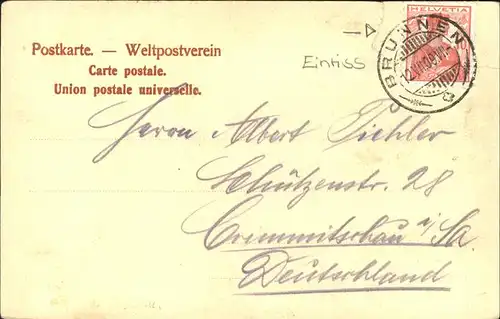 HELVETIA
BRUNNEN
Postkarte. — Weltpostverein
Einriss
Carte postale.
Union postale universelle.
Herrn Albert Pichler
Schützenstr. 28
Crimmitschau i/Sa.
Deutschland